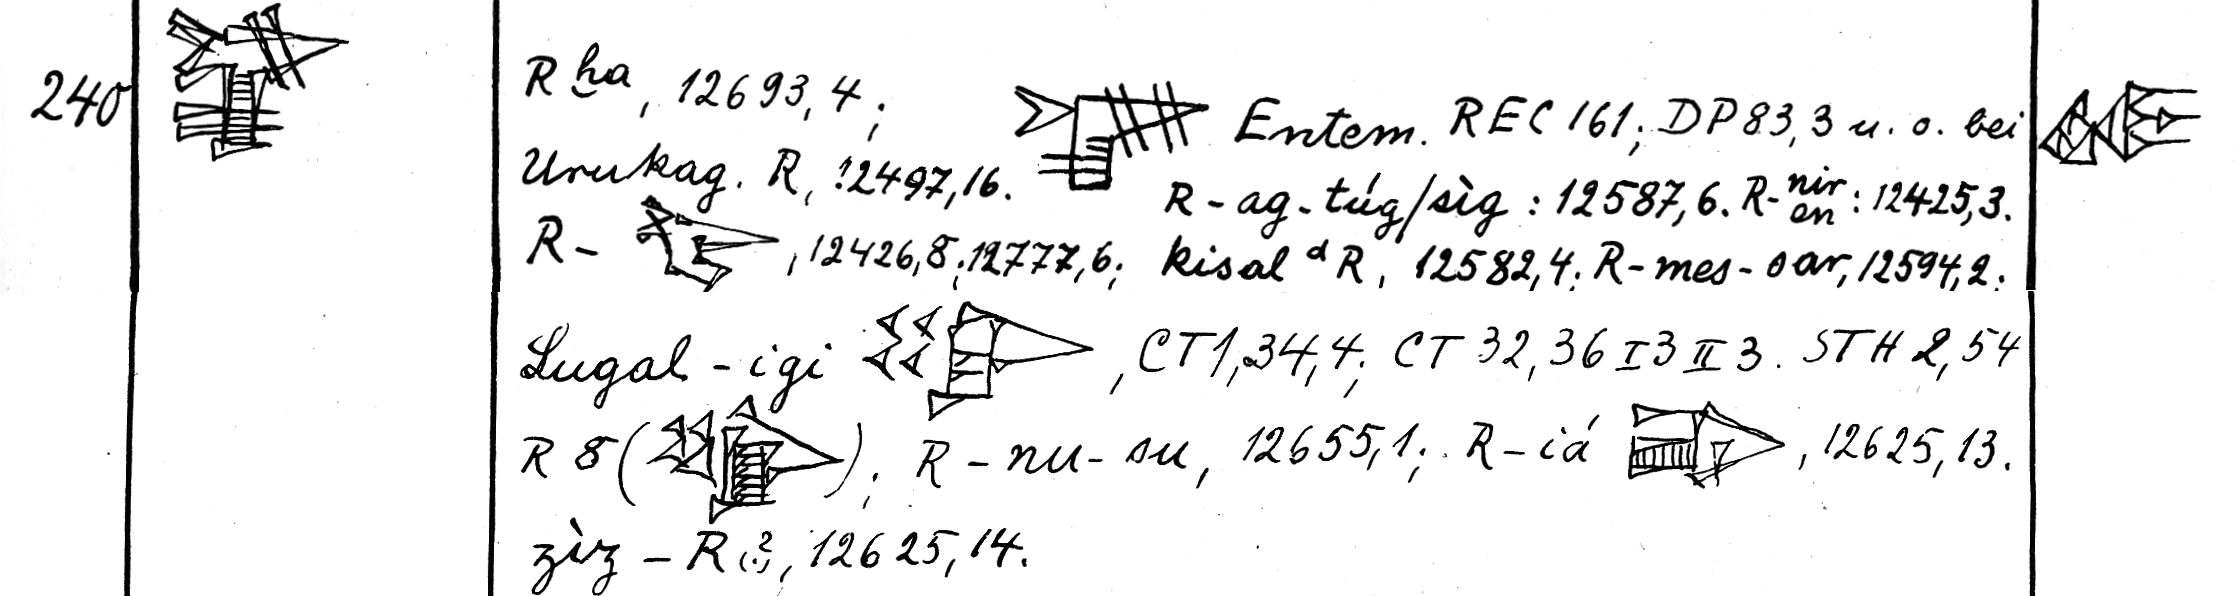 240
R ḫa, 12693,4; Entem. REC 161; DP 83,3 u. o. bei
Urukag. R, 12497,16. R-ag-túg/sìg: 12587,6. R-nir/en: 12425,3.
R- , 12426,8; 12777,6; kisal ᵈR, 12582,4; R-mes-sar, 12594,2;
Lugal-igi , CT 1,34,4; CT 32,36 I 3 II 3. STH 2,54
R 8 ( ); R-nu-su, 12655,1; R-iá , 12625,13.
zìz-R(?), 12625,14.